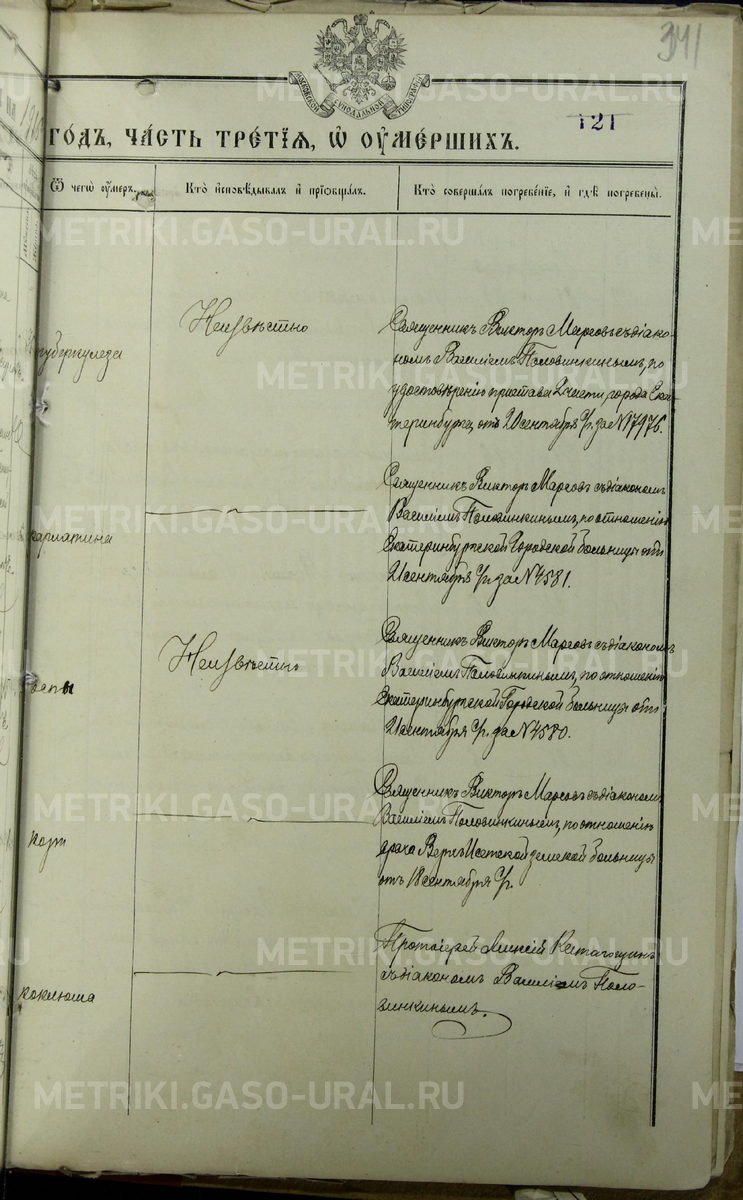 341
121
МОСКОВСКОЙ СѴНОДАЛЬНОЙ ТИПОГРАФІИ
ГОДЪ, ЧАСТЬ ТРЕТІЯ, Ѡ ОУМЕРШИХЪ.
Ѿ чегѡ оумеръ.
Кто исповѣдывалъ и пріобщалъ.
Кто совершалъ погребеніе, и гдѣ погребены.
туберкулеза
Неизвѣстно
Священникъ Викторъ Марсовъ съ діако-
номъ Василіемъ Половинкинымъ, по
удостовѣренію пристава 2 части, города Ека-
теринбурга, отъ 20 сентября с/г. за № 17976.
скарлатина
Священникъ Викторъ Марсовъ съ діакономъ
Василіемъ Половинкинымъ, по отношенію
Екатеринбургской Городской больницы отъ
21 сентября с/г. за № 4581.
оспы
Неизвѣстно
Священникъ Викторъ Марсовъ съ діакономъ
Василіемъ Половинкинымъ, по отношенію
Екатеринбургской Городской больницы отъ
21 сентября с/г. за № 4580.
Священникъ Викторъ Марсовъ съ діакономъ
Василіемъ Половинкинымъ, по отношенію
врача Верхъ Исетской земской больницы
отъ 18 сентября с/г.
коклюша
Протоіерей Алексій
съ діакономъ Василіемъ Поло-
винкинымъ.
METRIKI.GASO-URAL.RU